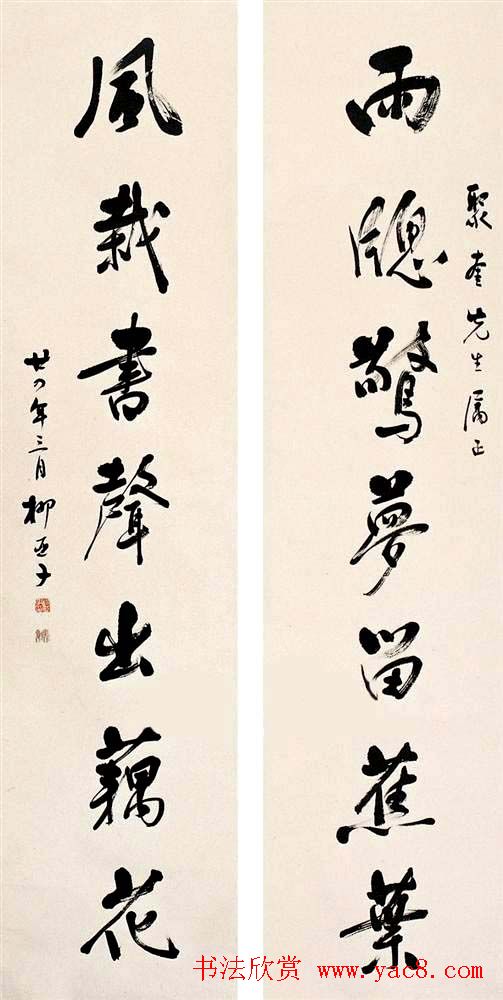 聚奎先生屬正
雨牕驚夢留蕉葉
風裁書聲出藕花
廿四年三月柳亞子
书法欣赏 www.yac8.com